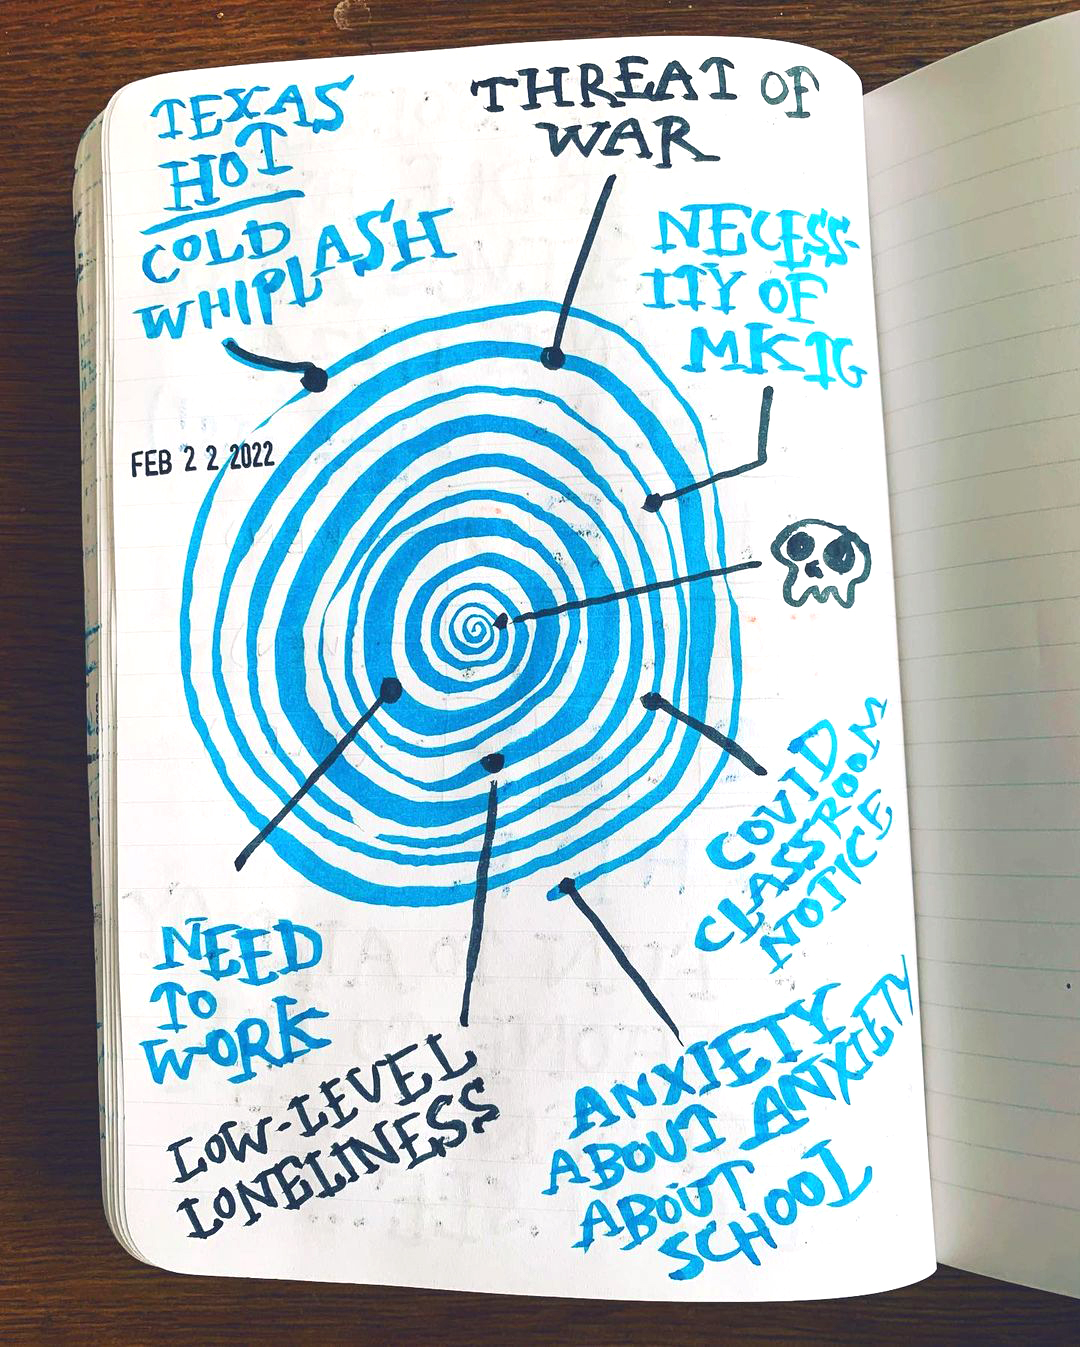 TEXAS
HOT
COLD
WHIPLASH
THREAT OF
WAR
NECESS-
ITY OF
MKTG
FEB 22 2022
COVID
CLASSROOM
NOTICE
NEED
TO
WORK
LOW-LEVEL
LONELINESS
ANXIETY
ABOUT ANXIETY
ABOUT
SCHOOL